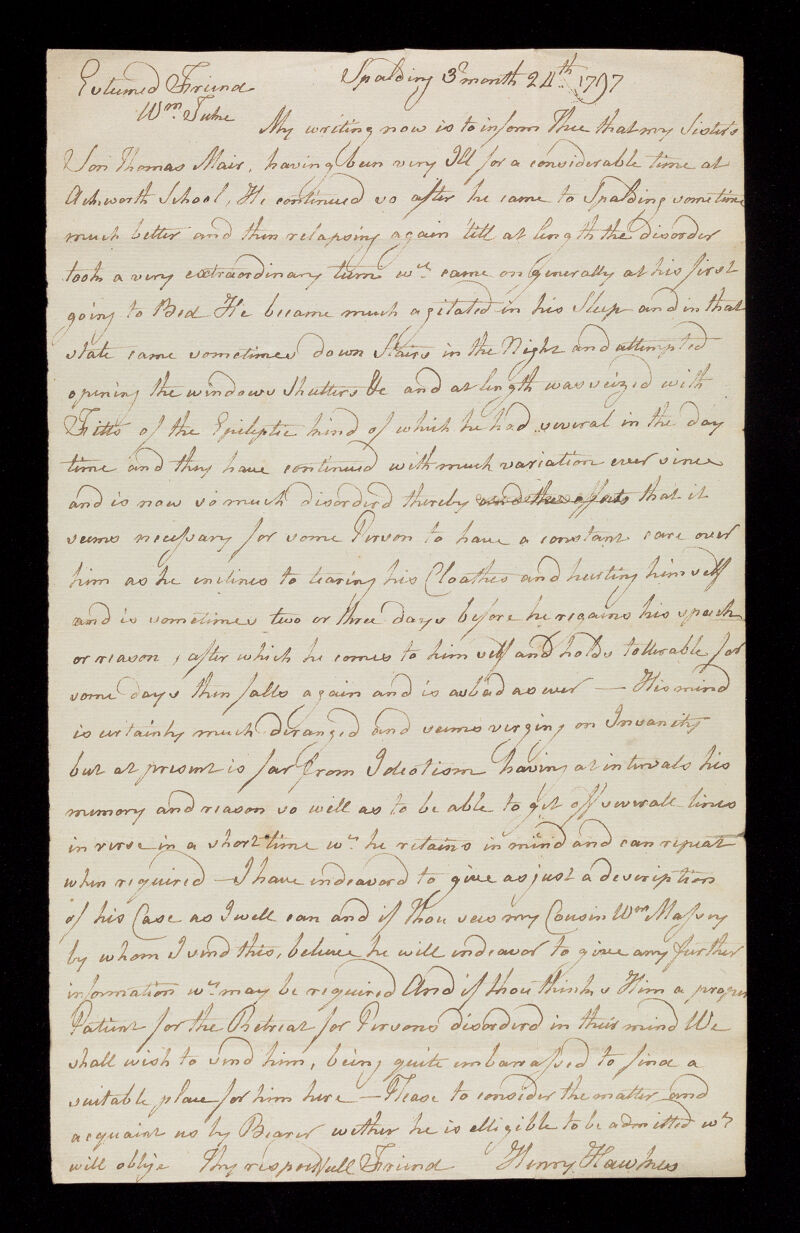 Esteemed Friend Spalding 3d month 24th 1797
Wm. Tuke
My writing now is to inform Thee that my Sister's
Son Thomas Mair, having been very Ill for a considerable time at
Ackworth School, He continued so after he came to Spalding sometime
much better and then relapsing again 'till at length the disorder
took a very extraordinary turn wch came on generally at his first
going to Bed He became much agitated in his Sleep and in that
state came sometimes down Stairs in the Night and attempted
opening the windows Shutters &c and at length was seized with
Fitts of the Epileptic kind of which he had several in the day
time and they have continued with much variation ever since
and is now so much disorderd thereby and the effects that it
seems necessary for some Person to have a constant care over
him as he inclines to tearing his Cloathes and hurting himself
and is sometimes two or three days before he regains his speech
or reason, after which he comes to himself and holds tollerable for
some days then falls again and is as bad as ever — His mind
is certainly much deranged and seems verging on Insanity
but at present is far from Ideotism having at intervals his
memory and reason so well as to be able to get off severall lines
in verse in a short time wch he retains in mind and can repeat
when required — I have endeavord to give as just a description
of his Case as I well can and if thou sees my Cousin Wm Massey
by whom I send this, believe he will endeavor to give any further
information wch may be required And if thou thinks Him a proper
Patient for the Retreat for Persons disorderd in their mind We
shall wish to send him, being quite embarrassed to find a
suitable place for him here — Please to consider the matter and
acquaint us by Bearer wether he is elligible to be admitted wch
will oblige Thy respectfull Friend Henry Hawkes